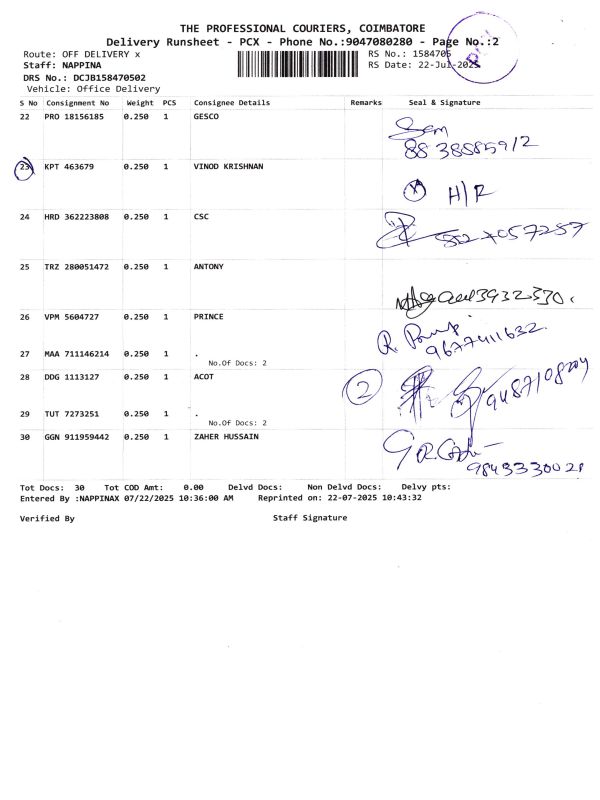 THE PROFESSIONAL COURIERS, COIMBATORE
Delivery Runsheet - PCX - Phone No.:9047080280 - Page No.:2
Route: OFF DELIVERY x RS No.: 1584705
Staff: NAPPINA RS Date: 22-Jul-2025
DRS No.: DCJB158470502
Vehicle: Office Delivery
S No Consignment No Weight PCS Consignee Details Remarks Seal & Signature
22 PRO 18156185 0.250 1 GESCO
8838885912
23 KPT 463679 0.250 1 VINOD KRISHNAN
H/R
24 HRD 362223808 0.250 1 CSC
25 TRZ 280051472 0.250 1 ANTONY
26 VPM 5604727 0.250 1 PRINCE
9677411632.
27 MAA 711146214 0.250 1 .
No.Of Docs: 2
28 DDG 1113127 0.250 1 ACOT
2
29 TUT 7273251 0.250 1 .
No.Of Docs: 2
30 GGN 911959442 0.250 1 ZAHER HUSSAIN
9843330021
Tot Docs: 30 Tot COD Amt: 0.00 Delvd Docs: Non Delvd Docs: Delvy pts:
Entered By :NAPPINAX 07/22/2025 10:36:00 AM Reprinted on: 22-07-2025 10:43:32
Verified By Staff Signature